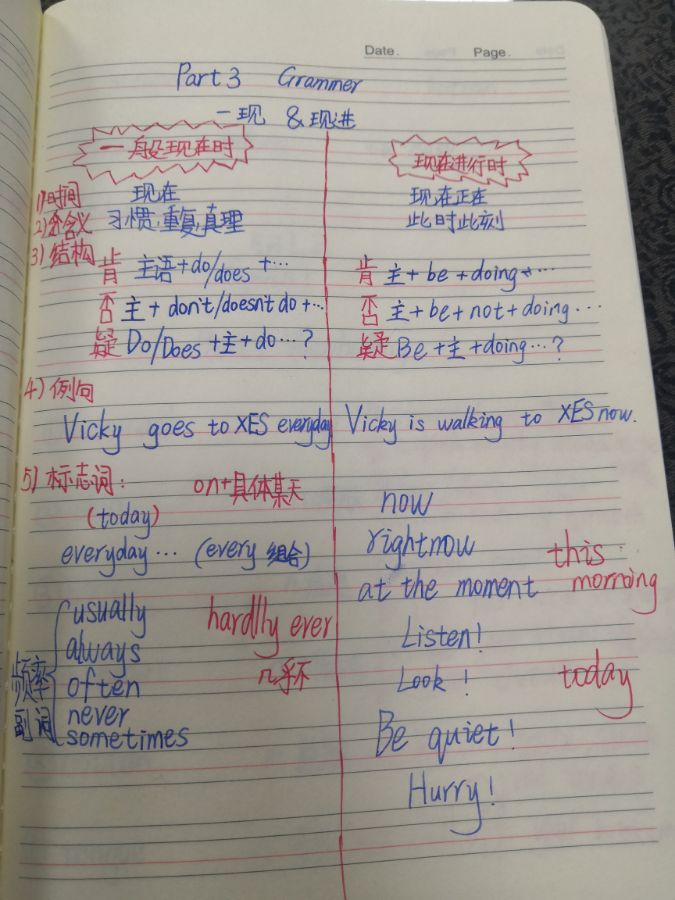 Date. Page.
Part 3 Grammer
一现 & 现进
一般现在时
现在进行时
1)时间 现在
现在正在
2)含义 习惯,重复,真理
此时此刻
3)结构
肯 主语+do/does +…
肯 主+ be +doing+…
否 主+ don't/doesn't do +…
否 主+be+not+doing…
疑 Do/Does +主+do…?
疑 Be+主+doing…?
4)例句
Vicky goes to XES everyday
Vicky is walking to XES now.
5)标志词:
on+具体某天
(today)
everyday… (every 组合)
usually
always
often
never
sometimes
频率
副词
hardlly ever
几乎不
now
rightnow
at the moment
Listen!
Look!
Be quiet!
Hurry!
this
morning
today